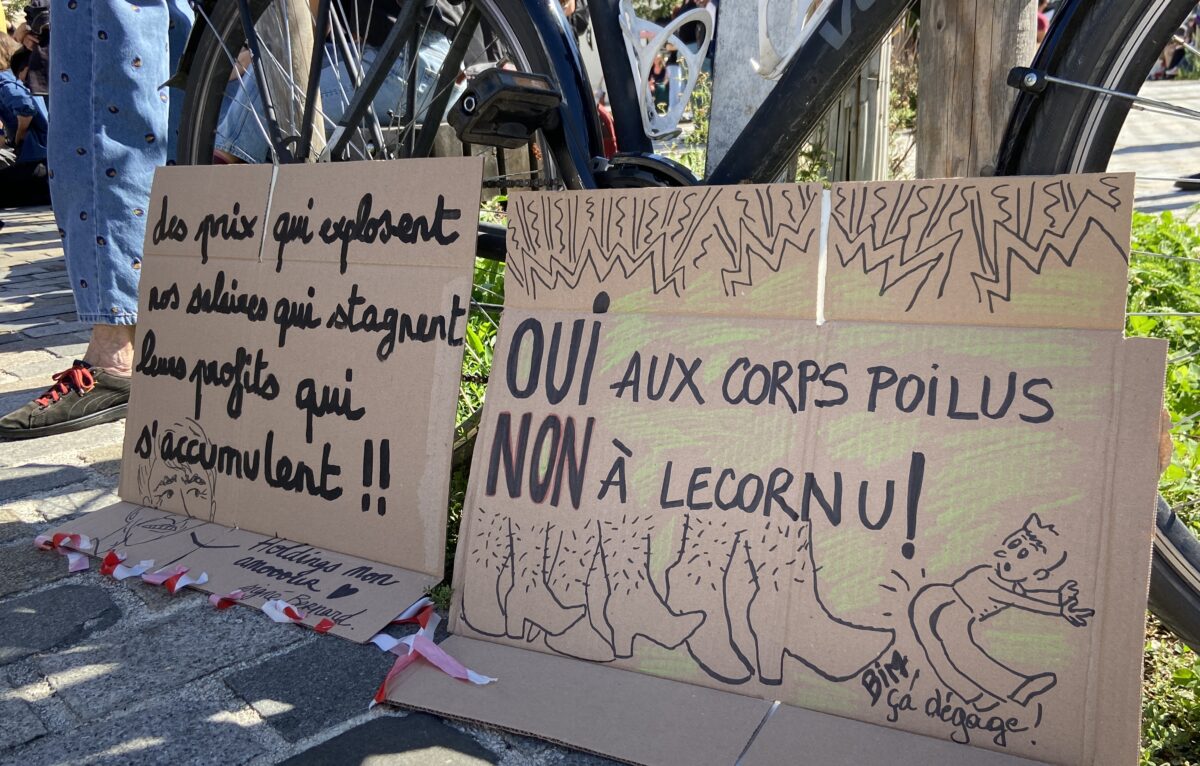 des prix qui explosent
nos salaires qui stagnent
leurs profits qui
s'accumulent !!
Holdings mon
amooour ♥
signé Bernard.
OUI AUX CORPS POILUS
NON À LECORNU !
BIM,
ça dégage !